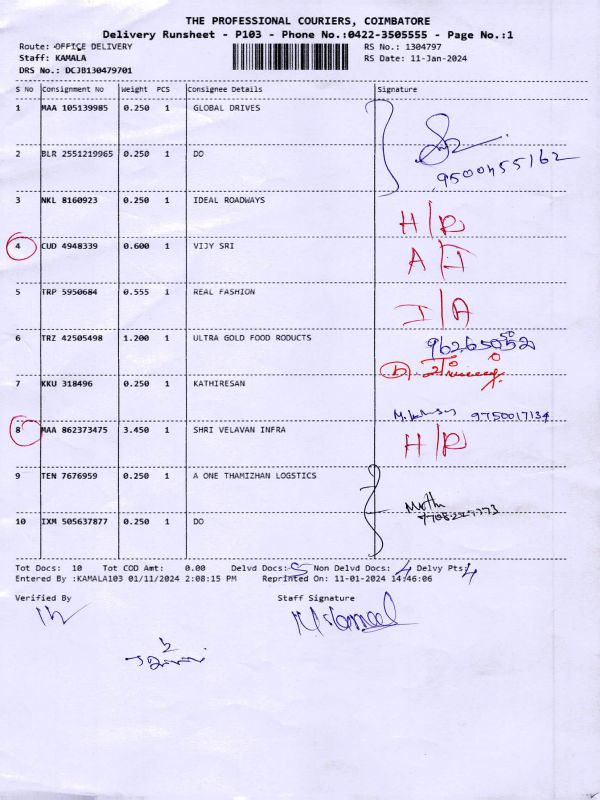 THE PROFESSIONAL COURIERS, COIMBATORE
Delivery Runsheet - P103 - Phone No.:0422-3505555 - Page No.:1
Route: OFFICE DELIVERY RS No.: 1304797
Staff: KAMALA RS Date: 11-Jan-2024
DRS No.: DCJB130479701
S No Consignment No Weight PCS Consignee Details Signature
1 MAA 105139985 0.250 1 GLOBAL DRIVES
2 BLR 2551219965 0.250 1 DO 9500455162
3 NKL 8160923 0.250 1 IDEAL ROADWAYS H/R
4 CUD 4948339 0.600 1 VIJY SRI A
5 TRP 5950684 0.555 1 REAL FASHION I/A
6 TRZ 42505498 1.200 1 ULTRA GOLD FOOD RODUCTS
7 KKU 318496 0.250 1 KATHIRESAN 9750017134
8 MAA 862373475 3.450 1 SHRI VELAVAN INFRA H/R
9 TEN 7676959 0.250 1 A ONE THAMIZHAN LOGSTICS Muthu
10 IXM 505637877 0.250 1 DO
Tot Docs: 10 Tot COD Amt: 0.00 Delvd Docs: 5 Non Delvd Docs: 4 Delvy Pts: 4
Entered By :KAMALA103 01/11/2024 2:08:15 PM Reprinted On: 11-01-2024 14:46:06
Verified By Staff Signature